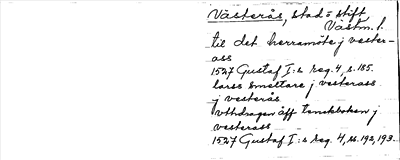 Västerås, stad o stift
Västm. l.
til det herramöte j vester-
ass
1527 Gustaf I:s reg. 4, s. 185.
larss smeltare j vesterass
j vesterås
vthdragen åff tenckboken j
vesterass
1527 Gustaf I:s reg. 4, ss. 192, 193.